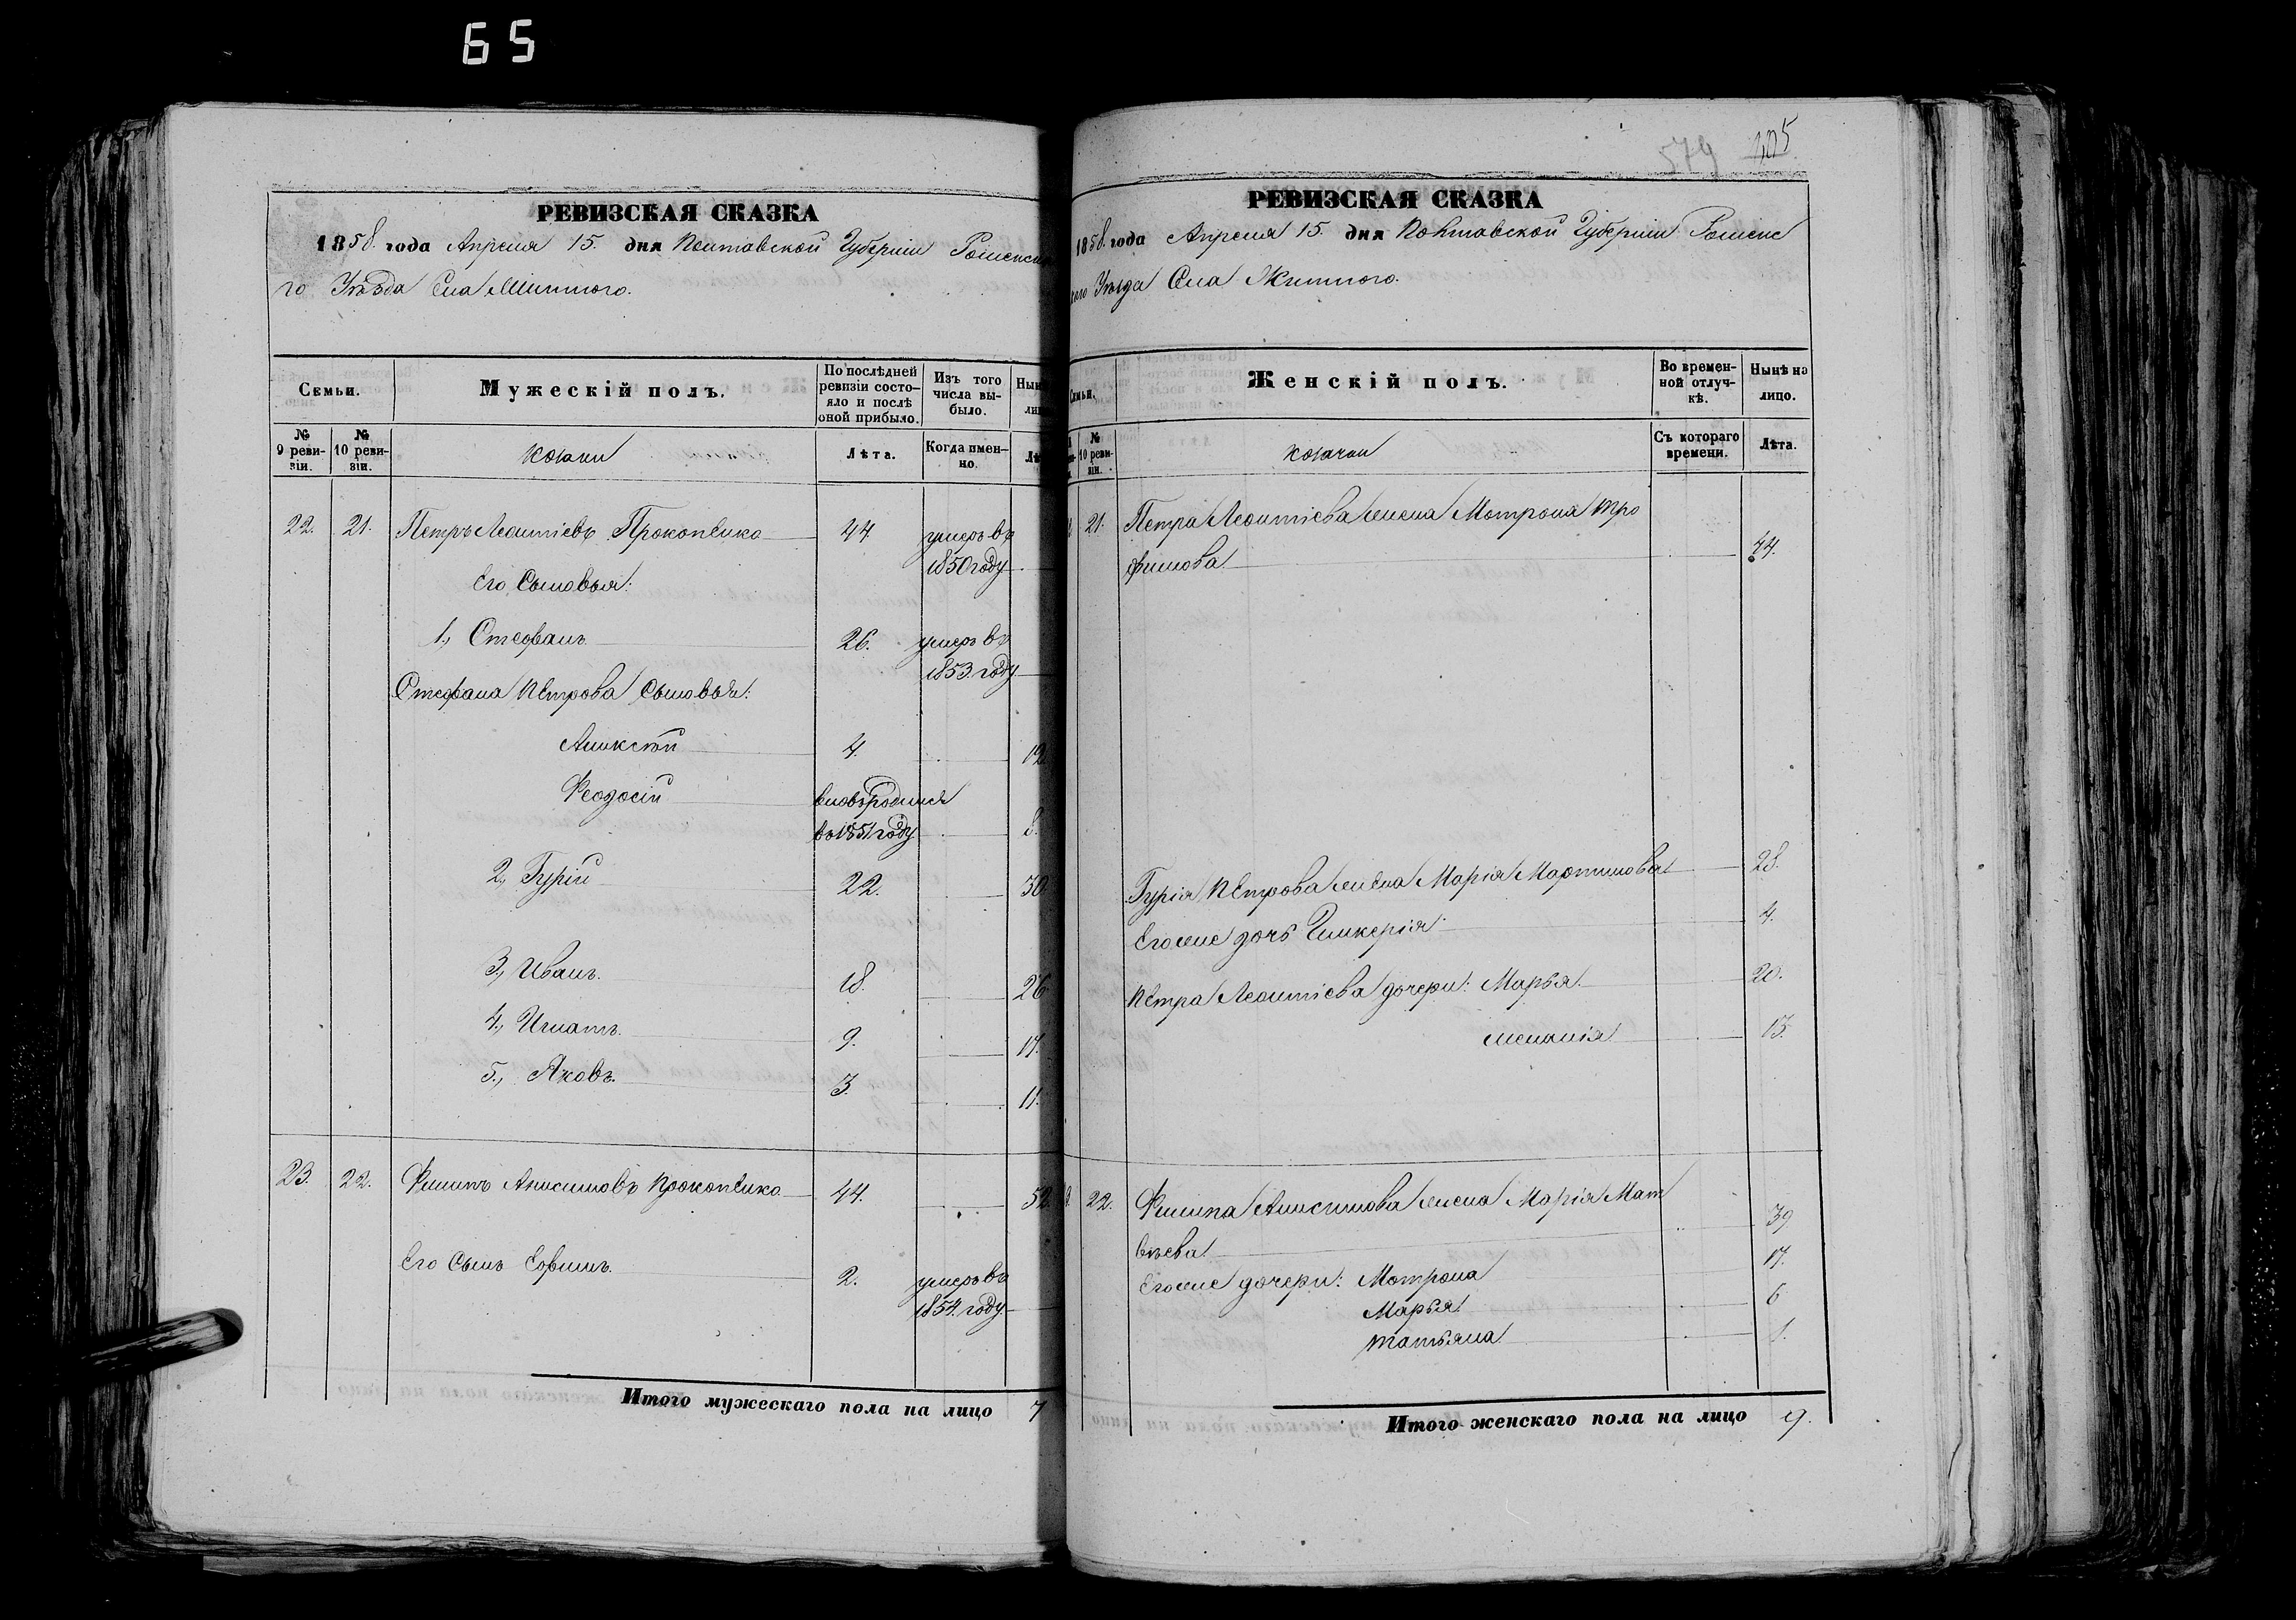 65
579 405
РЕВИЗСКАЯ СКАЗКА
1858. года Апреля 15. дня Полтавской Губерніи Роменска
го Уѣзда Села Житного.
Семьи.
Мужескій полъ.
По послѣдней ревизіи состо-
яло и послѣ
оной прибыло.
Изъ того
числа вы-
было.
№
9 реви-
зіи.
№
10 реви-
зіи.
козаки
Лѣта.
Когда имен-
но.
22. 21. Петръ Леонтіевъ Прокопенко 44 умеръ въ
1850 году
Его Сыновья:
1, Стефанъ 26. умеръ въ
1853. году
Стефана Петрова Сыновья:
Алексѣй 4. 12
Феодосій вновь родился
въ 1851 году 8.
2, Гурій 22. 30
3, Иванъ. 18. 26
4, Игнатъ. 9. 17.
5, Яковъ. 3. 11.
23. 22. Филипъ Анисимовъ Прокопенко 44. 52.
Его Сынъ Ефимъ. 2. умеръ въ
1854. году
Итого мужескаго пола на лицо 7
РЕВИЗСКАЯ СКАЗКА
1858. года Апреля 15. дня Полтавской Губерніи Роменс
каго Уѣзда Села Житного.
Женскій полъ.
Во времен-
ной отлуч-
кѣ.
Нынѣ на
лицо.
№
10 реви-
зіи.
козачки
Съ котораго
времени.
Лѣта.
21. Петра Леонтіева жена Мотрона Тро
фимова 44.
Гурія Петрова жена Марія Мартинова 28.
Его же дочь Гликерія 4.
Петра Леонтіева дочери: Марья 20.
Меланія 13.
22. Филипа Анисимова жена Марія Мат
вѣева 39
Его же дочери: Мотрона 17.
Марья 6
Татьяна 1.
Итого женскаго пола на лицо 9.